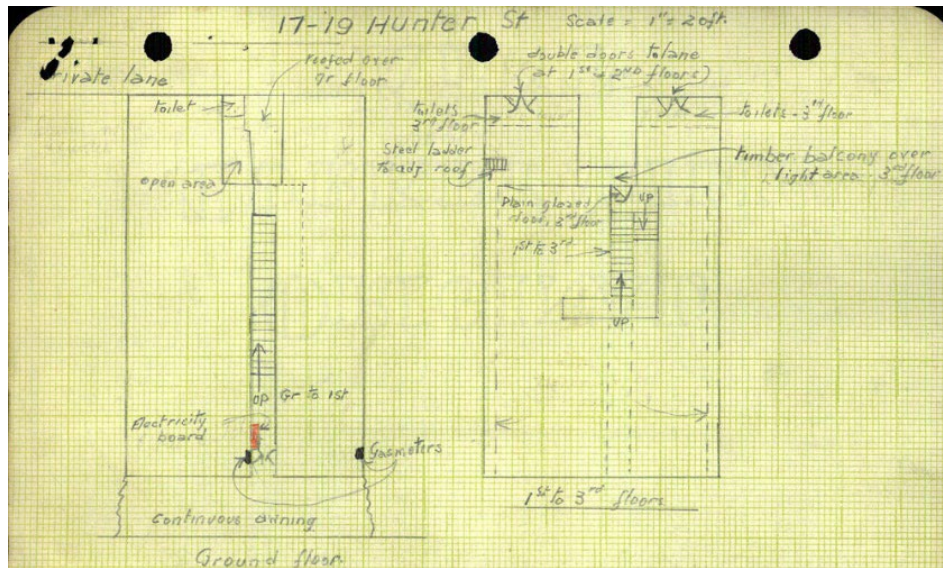 17-19 Hunter St
Scale = 1" = 20ft.
Private lane
roofed over
Gr floor
toilet
open area
UP
Gr to 1st
Electricity
board
Gasmeters
Continuous awning
Ground floor
double doors to lane
at 1st & 2ND floors)
toilets
3rd floor
toilets - 3rd floor
Steel ladder
to adj. roof
timber balcony over
light area - 3rd floor
Plain glazed
door, 3rd floor
UP
1st to 3rd
UP
1st to 3rd floors